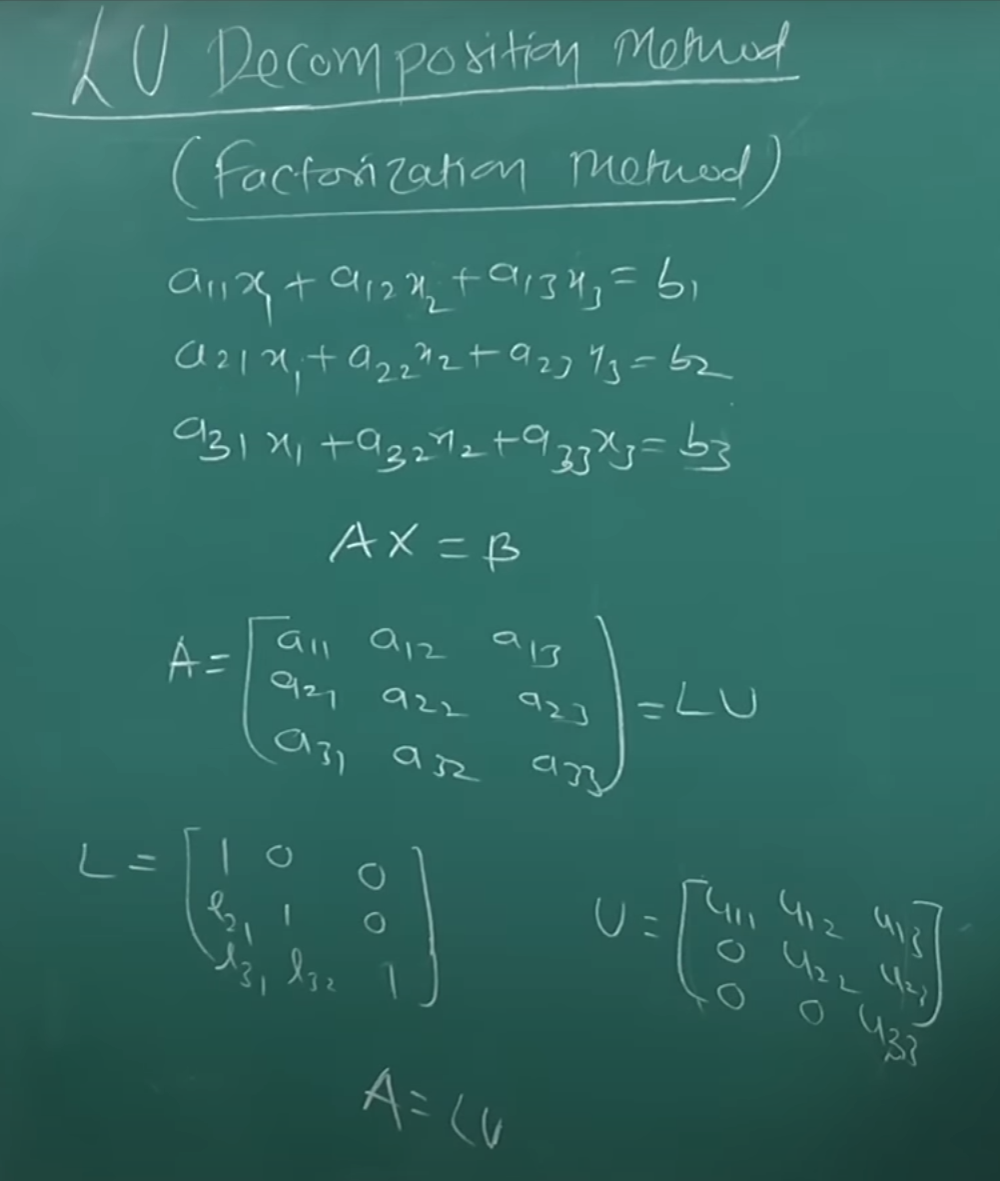 LU Decomposition Method
(Factorization Method)
a₁₁x₁ + a₁₂x₂ + a₁₃x₃ = b₁
a₂₁x₁ + a₂₂x₂ + a₂₃x₃ = b₂
a₃₁x₁ + a₃₂x₂ + a₃₃x₃ = b₃
AX = B
A = [a₁₁ a₁₂ a₁₃
a₂₁ a₂₂ a₂₃
a₃₁ a₃₂ a₃₃] = LU
L = [1 0 0
l₂₁ 1 0
l₃₁ l₃₂ 1]
U = [u₁₁ u₁₂ u₁₃
0 u₂₂ u₂₃
0 0 u₃₃]
A = LU